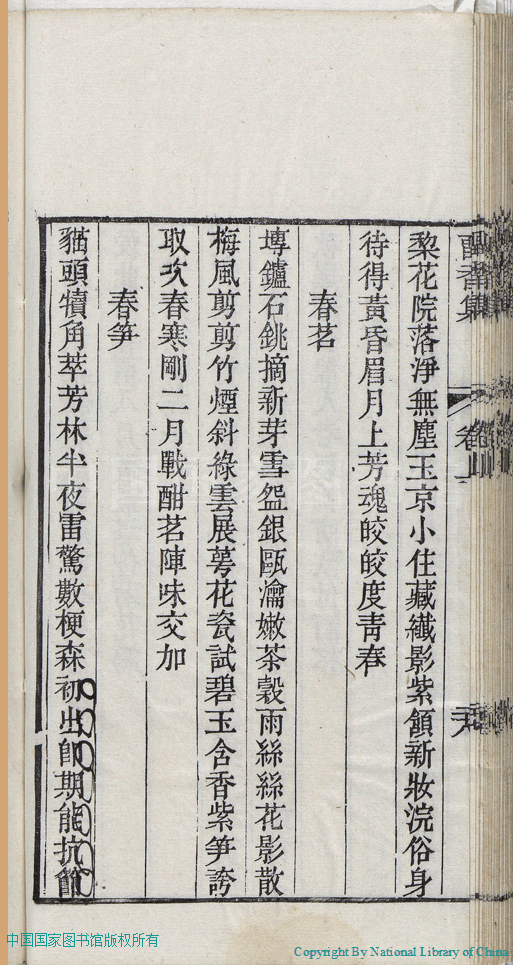 梨花院落淨無塵玉京小住藏纖影紫領新妝浣俗身
待得黃昏眉月上芳魂皎皎度靑春
春茗
塼鑪石銚摘新芽雪盌銀甌瀹嫩茶穀雨絲絲花影散
梅風剪剪竹煙斜綠雲展萼花瓷試碧玉含香紫笋誇
取次春寒剛二月戰酣茗陣味交加
春笋
貓頭犢角萃芳林半夜雷驚數梗森初出卽期能抗節
中国国家图书馆版权所有
Copyright By National Library of China